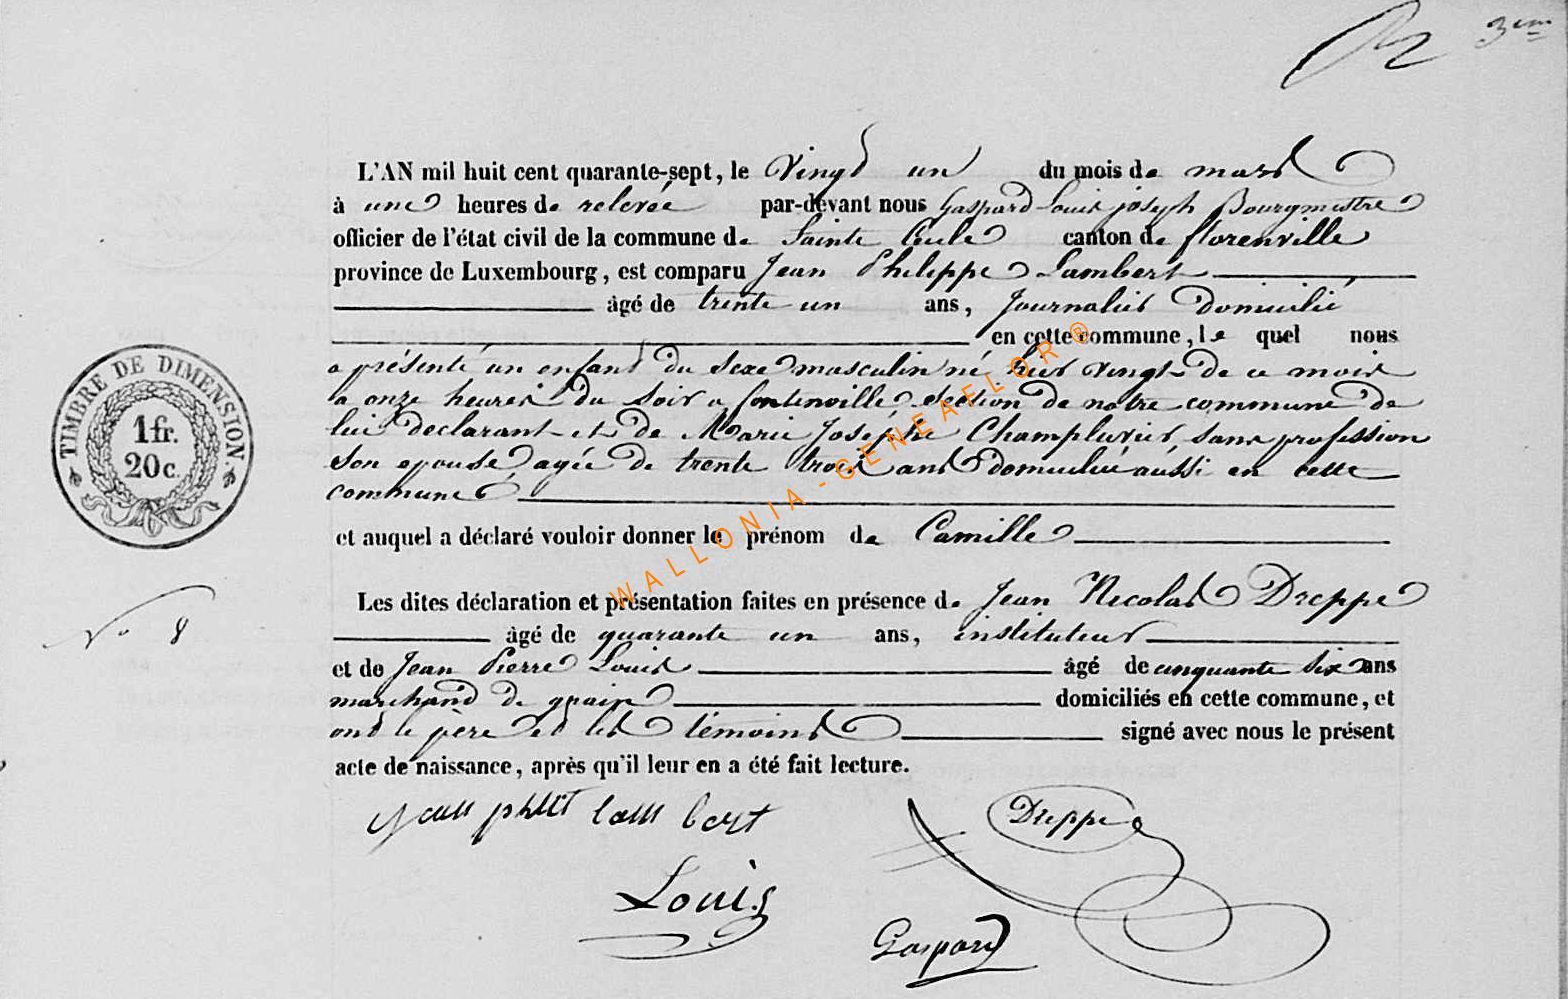 3em
L'AN mil huit cent quarante-sept, le Vingt un du mois de mars
à une heures de relevée par-devant nous Gaspard Louis joseph Bourgmestre
officier de l'état civil de la commune de Sainte Cecile canton de florenville
province de Luxembourg, est comparu Jean Philippe Lambert
âgé de trente un ans, Journalier Domicilié
en cette commune, le quel nous
a présenté un enfant du sexe masculin né hier vingt de ce mois
a onze heures du soir a fontenoille section de notre commune de
lui declarant et de Marie Josephe Champluvier sans profession
son epouse agée de trente trois ans domiciliée aussi en cette
commune
et auquel a déclaré vouloir donner le prénom de Camille
Les dites déclaration et présentation faites en présence de Jean Nicolas Dreppe
âgé de quarante un ans, instituteur
et de Jean Pierre Louis âgé de cinquante six ans
marchand de grain domiciliés en cette commune, et
ont le père et les témoins signé avec nous le présent
acte de naissance, après qu'il leur en a été fait lecture.
TIMBRE DE DIMENSION
1 fr.
20 c.
No 8
Jean lambert
Dreppe
Louis
Gaspard
WALLONIA - GENEAFLOR ®